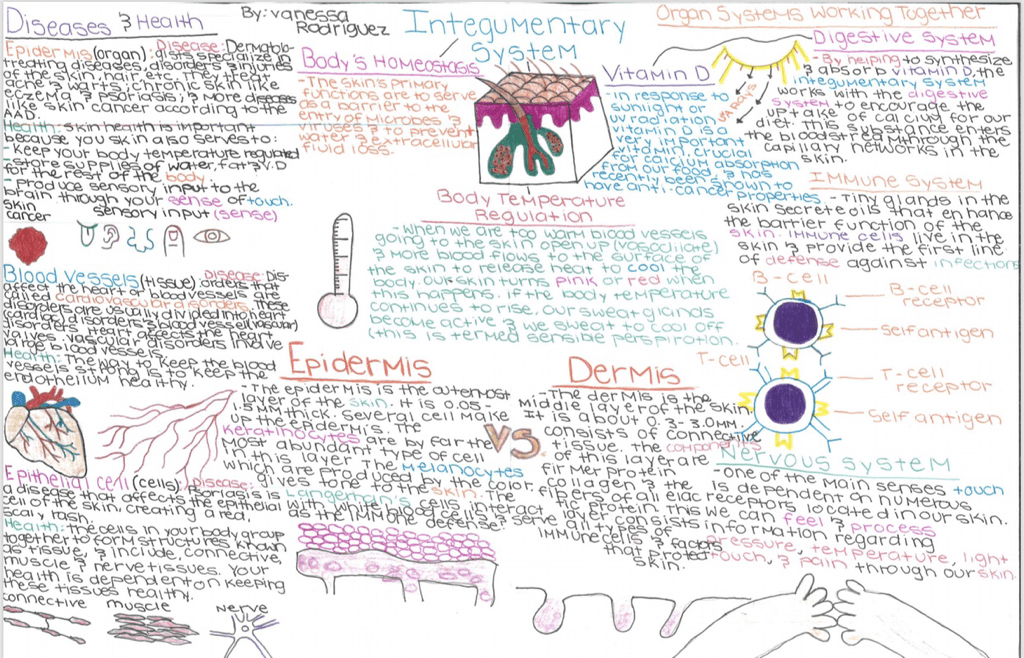 Diseases & Health
By: Vanessa
Rodriguez
Epidermis (organ): Disease: Dermatolo-
gists specialize in
treating diseases, disorders & injuries
of the skin, hair, etc. They treat
acne & warts, chronic skin like
eczema & psoriasis, & more diseases
like skin cancer according to the
AAD.
Health: Skin health is important
because you skin also serves to:
- Keep your body temperature regulated
- Store supplies of water, fat, & vit. D
for the rest of the body
- Produce sensory input to the
brain through your sense of touch.
skin
cancer
sensory input (sense)
Blood Vessels (tissue): Disease: Dis-
orders that
affect the heart or blood vessels are
called cardiovascular disorders. These
disorders are usually divided into heart
(cardiac) disorders & blood vessel (vascular)
disorders. Heart affects the heart
valves. Vascular disorders involve
only blood vessels.
Health: The way to keep the blood
vessels strong is to keep the
endothelium healthy.
Epithelial cell (cells): Disease:
Psoriasis is
a disease that affects the epithelial
cell of the skin, creating a red,
scaly rash.
Health: The cells in your body group
together to form structures known
as tissue, & include, connective,
muscle & nerve tissues. Your
health is dependent on keeping
these tissues healthy.
connective
muscle
nerve
Integumentary
System
Body's Homeostasis
- The skin's primary
functions are to serve
as a barrier to the
entry of microbes &
viruses, & to prevent
water & extracellular
fluid loss.
Vitamin D
- in response to
sunlight or
uv radiation,
vitamin D is a
very important
and crucial
for calcium absorption
from our food, & has
recently been shown to
have anti-cancer properties
Body Temperature
Regulation
- When we are too warm blood vessels
going to the skin open up (vasodilate)
& more blood flows to the surface of
the skin to release heat to cool the
body. Our skin turns pink or red when
this happens. If the body temperature
continues to rise, our sweat glands
become active & we sweat to cool off
(this is termed sensible perspiration.
Epidermis
- The epidermis is the outermost
layer of the skin. It is 0.05 -
1.5 MM thick. Several cell make
up the epidermis. The
keratinocytes are by far the
most abundant type of cell
in this layer. The melanocytes
which are produced by the color,
gives tone to the skin. The
Langerhan's cells interact
with white blood cells
as the number one defense.
VS
Dermis
- The dermis is the
middle layer of the skin.
It is about 0.3-3.0MM.
consists of connective
tissue. The components
of this layer are
firmer protein
collagen & the
fibers of an elastic
protein. This
serve & consists
all types
immune cells & factors
that protect
skin.
Organ Systems Working Together
Digestive System
- By helping to synthesize
& absorb vitamin D, the
integumentary system
works with the digestive
system to encourage the
uptake of calcium for our
diet. This substance enters
the bloodstream through the
capillary networks in the
skin.
UV RAYS
Immune System
- Tiny glands in the
skin secrete oils that enhance
the barrier function of the
skin. Immune cells live in the
skin & provide the first line
of defense against infections
B-cell
B-cell
receptor
self antigen
T-cell
T-cell
receptor
self antigen
Nervous System
- One of the main senses touch
is dependent on numerous
receptors located in our skin.
we can feel & process
information regarding
pressure, temperature, light
touch, & pain through our skin.